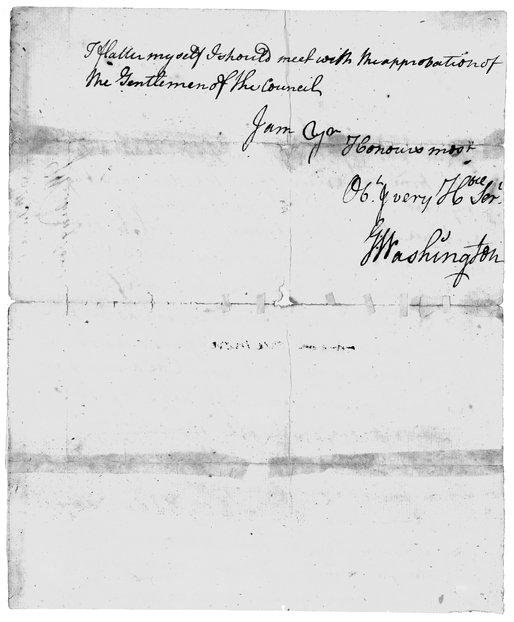 I flatter myself I should meet with the approbation of
the Gentlemen of the Council
I am Yr
Honours most
Obt. & very Hble Sert.
GWashington